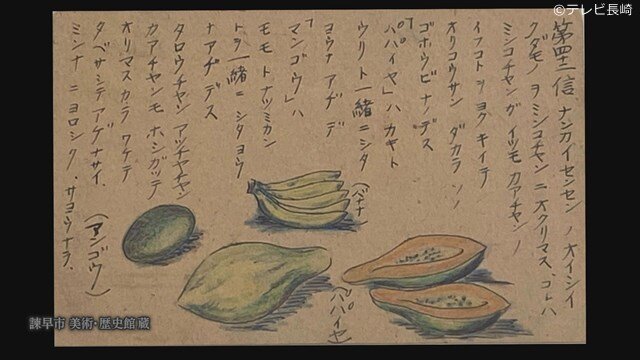 第四二信 ナンカイセンセン ノ オイシイ
クダモノ ヲ ミンコチヤン ニ オクリマス、コレハ
ミンコチヤンガ イツモ カアチヤンノ
イフコトヲ ヨク キイテ
オリコウサン ダカラ ソノ
ゴホウビ ナノデス
「パパイヤ」ハ カキト
ウリト 一緒ニシタ
ヨウナ アヂ デ
「マンゴウ」ハ
モモ ト ナツミカン
トヲ 一緒ニ シタヨウ
ナアヂ デス
タロウチヤン アツチヤチヤン
カアチヤンモ ホシガツテ
オリマスカラ ワケテ
タベサシテ アゲナサイ、
ミンナ ニ ヨロシク、サヨウナラ、
(バナナ)
(マンゴウ)
パパイヤ
諫早市 美術・歴史館 蔵
©テレビ長崎